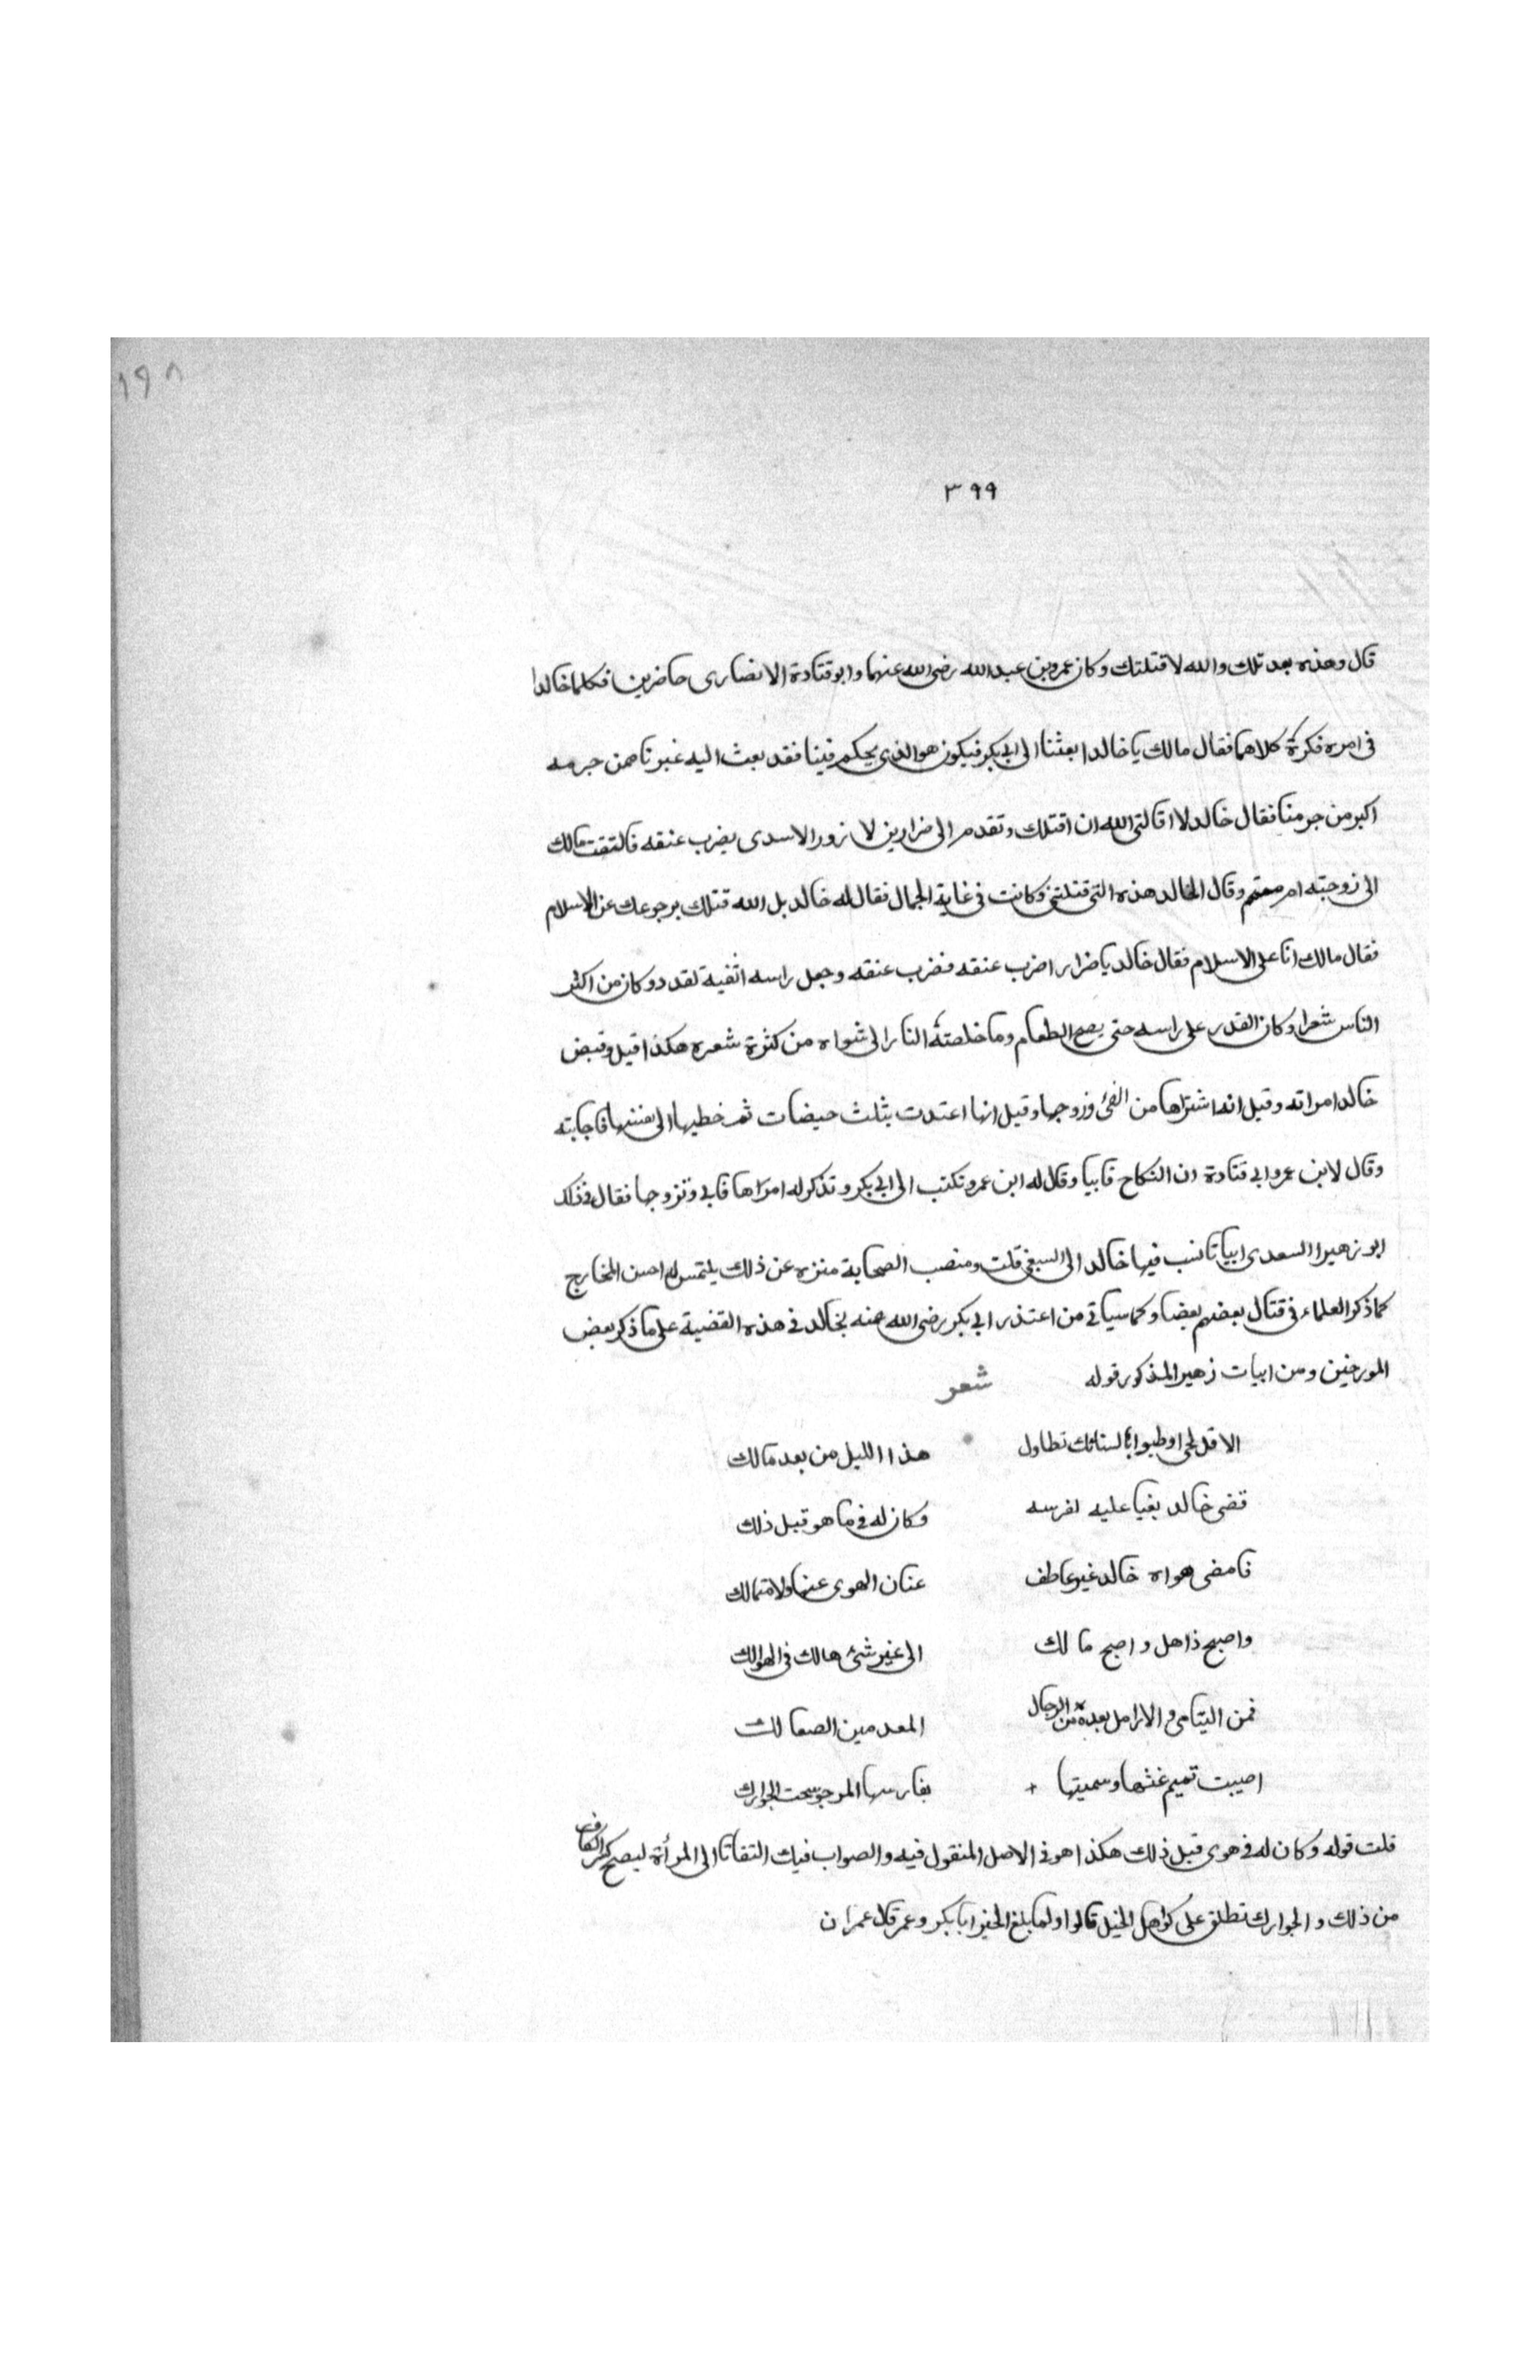 ١٩٨
٣٩٩
قال وهذه بعد تلك والله لاقتلنك وكان عمرو بن عبدالله رضى الله عنهما وابو قتادة الانصارى حاضرين فكلما خالدا
فى امره فكرة كلاهما فقال مالك يا خالد ابعثنا الى ابى بكر فيكون هو الذى يحكم فينا فقد بعث اليه غيرنا ممن جرمه
اكبر من جرمنا فقال خالد لا اقالنى الله ان اقتلك وتقدم الى ضرار بن لا زور الاسدى يضرب عنقه فالتفت مالك
الى زوجته ام متمم وقال لخالد هذه التى قتلتنى وكانت فى غاية الجمال فقال له خالد بل الله قتلك برجوعك عن الاسلام
فقال مالك انا على الاسلام فقال خالد يا ضرار اضرب عنقه فضرب عنقه وجعل راسه اثفية لقدد وكان من اكثر
الناس شعرا وكان القدر على راسه حتى يصح الطعام وما خلصته النار الى شواه من كثرة شعره هكذا قيل وقبض
خالد امراته وقيل انه اشتراها من الفئ وزوجها وقيل انها اعتدت بثلث حيضات ثم خطبها الى نفسها فاجابته
وقال لابن عمر وابى قتادة ان النكاح فابيا وقال له ابن عمر وتكتب الى ابى بكر وتذكر له امرها فابى وتزوجها فقال فى ذلك
ابو زهير السعدى ابياتا نسب فيها خالد الى السبغى قلت ومنصب الصحابة منزه عن ذلك يلتمس لهم احسن المخارج
كما ذكر العلماء فى قتال بعضهم بعضا وكما سياتى من اعتذر ابى بكر رضى الله عنه بخالد فى هذه القضية على ما ذكر بعض
المورخين ومن ابيات زهير المذكور قوله شعر
الا قل لحى اوطيوا بالسنانك تطاول هذا الليل من بعد مالك
قضى خالد بغيا عليه لفرسه وكان له فى ما هو قبل ذلك
فامضى هواه خالد غير عاطف عنان الهوى عنها ولا متمالك
واصبح ذاهل واصبح مالك الى غير شئ هالك فى الهوالك
فمن اليتامى والارامل بعده من الرجال المعدمين الصعالك
اصيبت تميم غثها وسمينها + بفارسها المرجو تحت الجوارك
قلت قوله وكان له فى هوى قبل ذلك هكذا هو فى الاصل المنقول فيه والصواب فيك التفاتا الى المرأة ليصح كسر الكاف
من ذلك والجوارك تطلق على كواهل الخيل قالوا ولما بلغ الخبر ابا بكر وعمر قال عمر ان